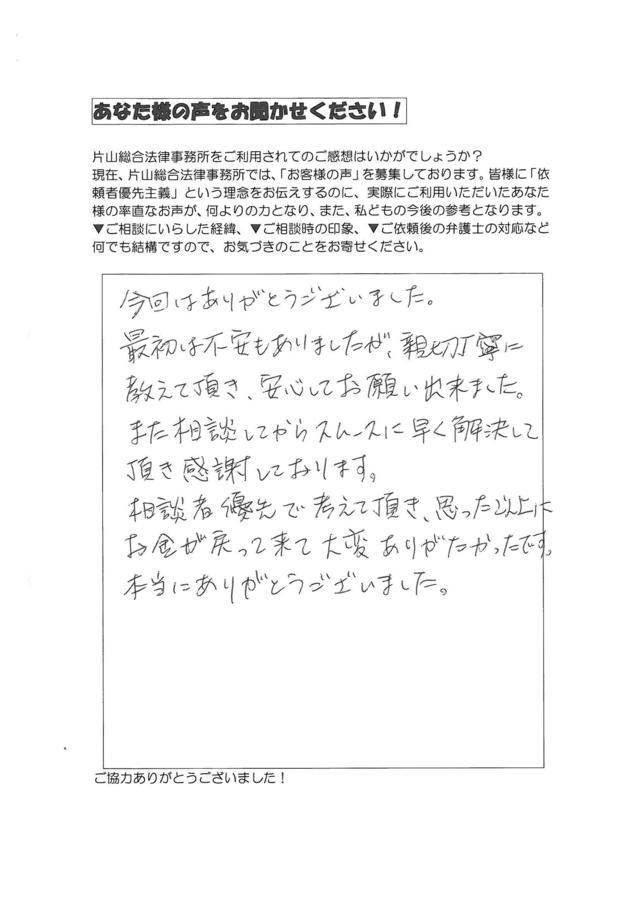 あなた様の声をお聞かせください！
片山総合法律事務所をご利用されてのご感想はいかがでしょうか？
現在、片山総合法律事務所では、「お客様の声」を募集しております。皆様に「依
頼者優先主義」という理念をお伝えするのに、実際にご利用いただいたあなた
様の率直なお声が、何よりの力となり、また、私どもの今後の参考となります。
▼ご相談にいらした経緯、▼ご相談時の印象、▼ご依頼後の弁護士の対応など
何でも結構ですので、お気づきのことをお寄せください。
今回はありがとうございました。
最初は不安もありましたが、親切丁寧に
教えて頂き、安心してお願い出来ました。
また相談してからスムースに早く解決して
頂き感謝しております。
相談者優先で考えて頂き、思った以上に
お金が戻って来て大変ありがたかったです。
本当にありがとうございました。
ご協力ありがとうございました！